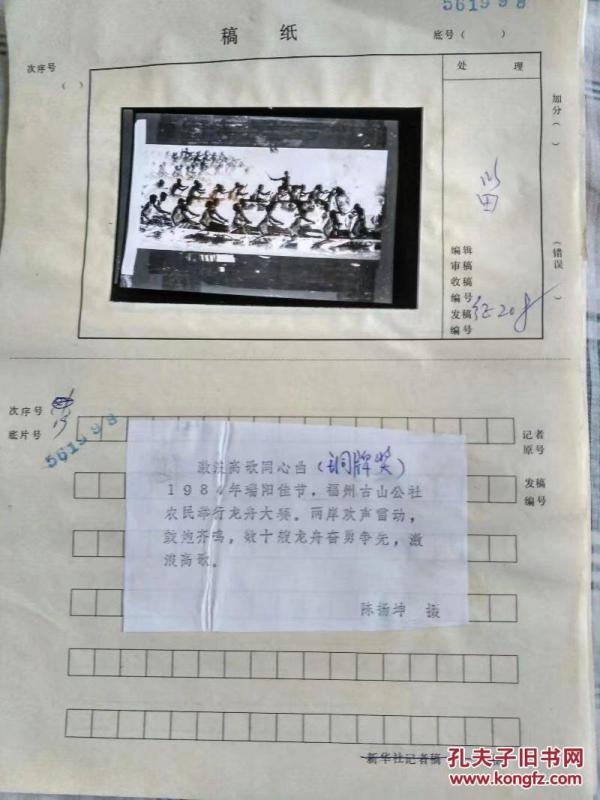 561998
稿 纸
底号( )
次序号
( )
处 理
加分( )
(错误 )
编辑
审稿
收稿
编号
发稿
编号
征208
次序号
底片号
561998
记者
原号
发稿
编号
激浪高歌同心曲(铜牌奖)
1984年端阳佳节,福州古山公社
农民举行龙舟大赛。两岸欢声雷动,
鼓炮齐鸣,数十艘龙舟奋勇争先,激
浪高歌。
陈扬坤 摄
新华社记者稿
孔夫子旧书网
www.kongfz.com